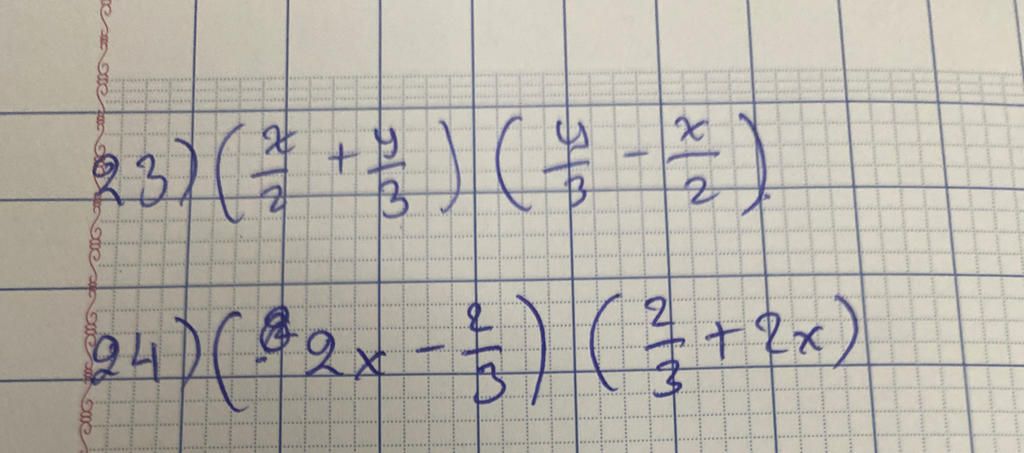 23) (x/2 + y/3) (y/3 - x/2).
24) (2x - 2/3) (2/3 + 2x)